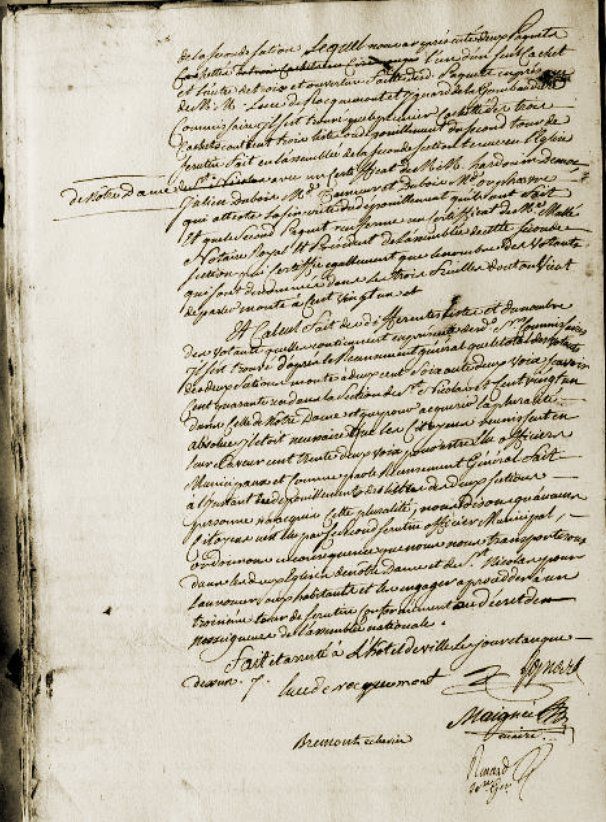 de la seconde section Lequel nous a représenté deux Paquets
Cachettés l'un d'un seul Cachet
et l'autre de trois et ouverture faite desd. Paquets en présence
de M.M. Luce de Rocquemont et
Commissaires il s'est trouvé que le premier Cachetté de trois
Cachets contient trois listes du dépouillement du second tour de
scrutin fait en l'assemblée de la seconde section tenue en l'Eglise
de Notre Dame avec un Certificat de M.M. hardouin
Julien dubois Md. et dubois Md. orphevre
qui atteste la sincérité du dépouillement qu'ils ont fait
Et que le second Paquet renferme un Certificat de Me. Mallé
Notaire Royal Et Président de l'assemblée de cette seconde
section qui certifie egallement que le nombre des Votants
qui sont dénommés dans les trois feuilles dont on vient
de parler monte à Cent vingt un et
Et Calcul fait des differentes listes et du nombre
des Votants qu'elles contiennent en présence desd. Srs. Commissaires
Il s'est trouvé d'après le Recensement général que le total des Votants
des deux sections monte à deux cent soixante deux voix savoir
Cent quarante un dans la section de St. Nicolas et Cent vingt un
dans Celle de Notre Dame et que pour acquerir la pluralité
absolue il étoit necessaire que les Citoyens reunissent en
leur faveur cent trente deux voix pour estre Elus officiers
Municipaux et Comme par le Recensement Général fait
à l'instant des dépouillements des billets des deux sections
personne n'a acquis Cette pluralité, nous disons qu'aucun
Citoyen n'est élu par ce second scrutin officier Municipal,
ordonnons en conséquence que nous nous transporterons
dans les deux Eglises de Notre Dame et de St. Nicolas pour
l'annoncer aux habitants et les engager à procéder à un
troisième tour de scrutin conformément au décret de
nosseigneurs de l'assemblée nationale.
Fait et arrêté à L'hotel de ville les jour et an que
dessus. /.
luce de rocquemont
Maignée
maire
Bremont echevin
Renard